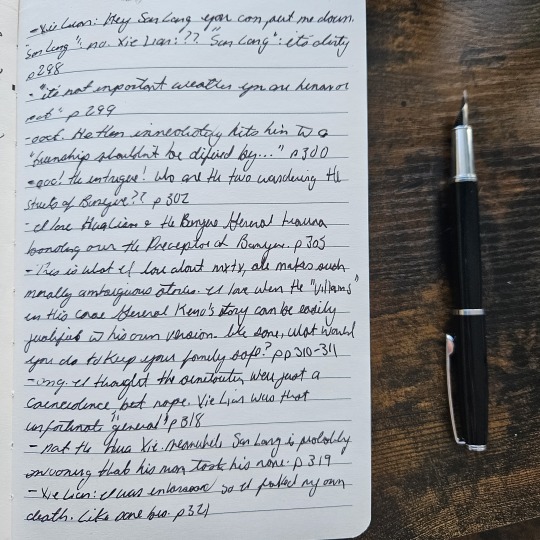 - Xie Lian: Hey San Lang you can put me down.
"San Lang": no. Xie Lian: ?? "San Lang": it's dirty
p298
- "it's not important weather you are human or
not" p299
- oooh. He then immediately hits him w a
"friendship shouldn't be difined by..." p300
- ooo! the intrigue! Who are the two wandering the
streets of Banyue?? p302
- I love Hualian & the Banyue General trauma
bonding over the Preceptor of Banyue. p305
- This is what I love about mxtx, she makes such
morally ambiguous stories. I love when the "villains"
in this case General Kemo's story can be easily
justified w his own version. Like same, what would
you do to keep your family safe? pp310-311
- omg. I thought the similarities were just a
coincedence but nope. Xie Lian was that
unfortunate "general" p318
- not the Hua Xie. meanwhile San Lang is probably
swooning that his man took his name. p319
- Xie Lian: I was embarassed so I faked my own
death. Like same bro. p321